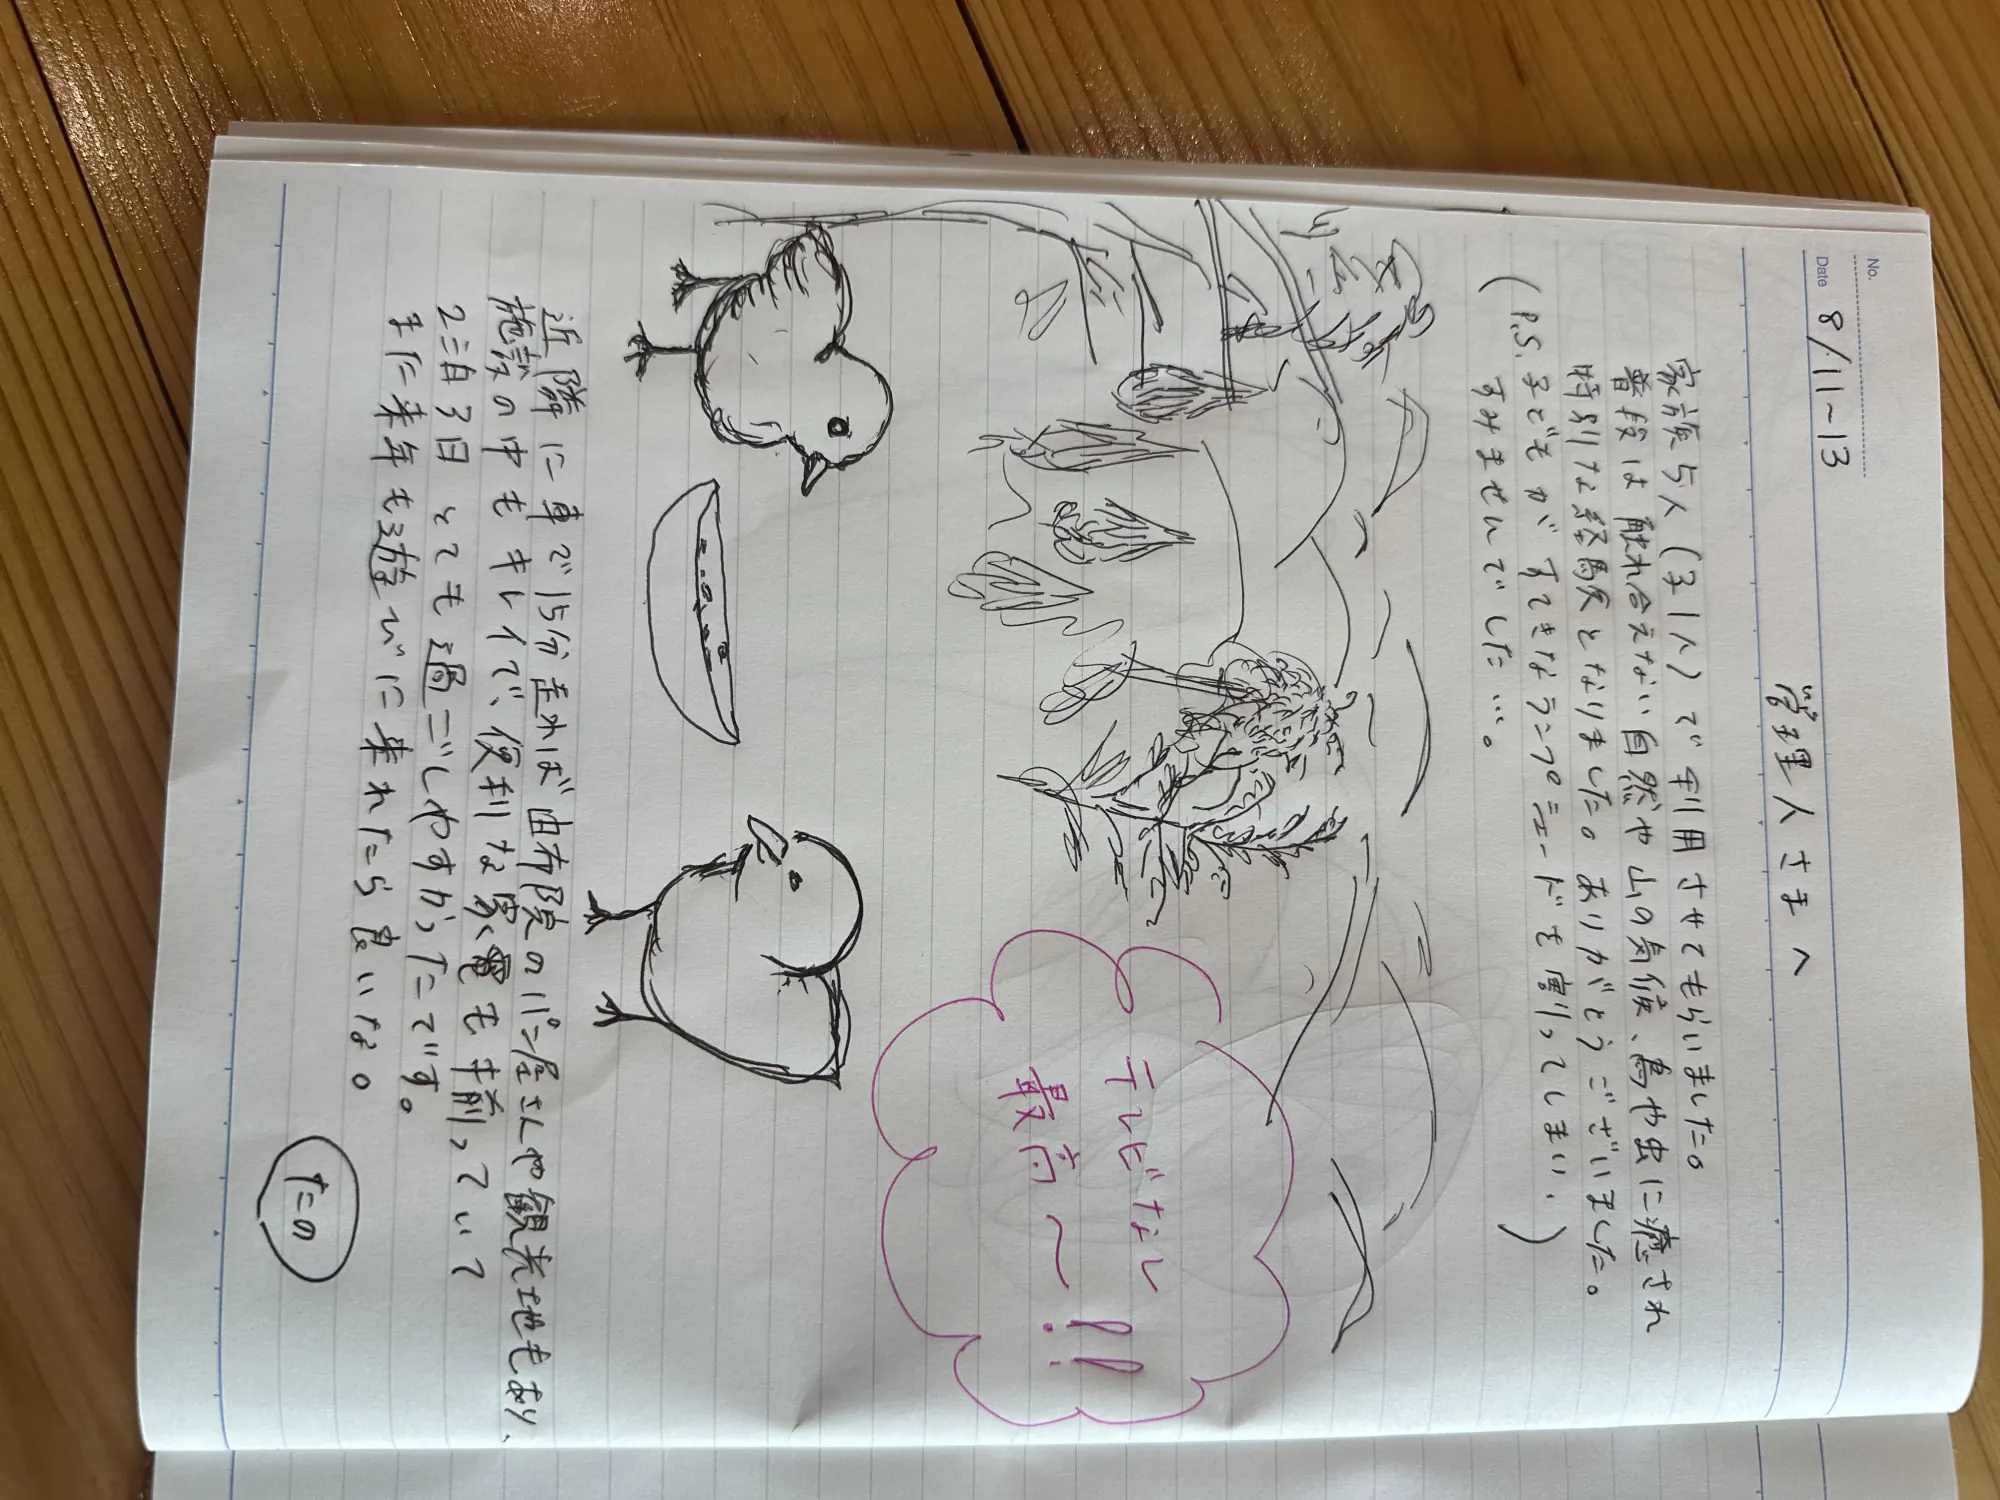 No.
Date 8/11~13
管理人さまへ
家族5人(子1人)で利用させてもらいました。
普段は触れ合えない自然や山の気候、鳥や虫に癒され
特別な経験となりました。ありがとうございました。
(P.S.子どもがすてきなランプシェードを割ってしまい、
すみませんでした…。)
テレビなし
最高〜!!
近隣に車で15分走れば由布院のパン屋さんや観光地もあり、
施設の中もキレイで、便利な家電も揃っていて
2泊3日とても過ごしやすかったです。
また来年も遊びに来れたら良いな。
たの